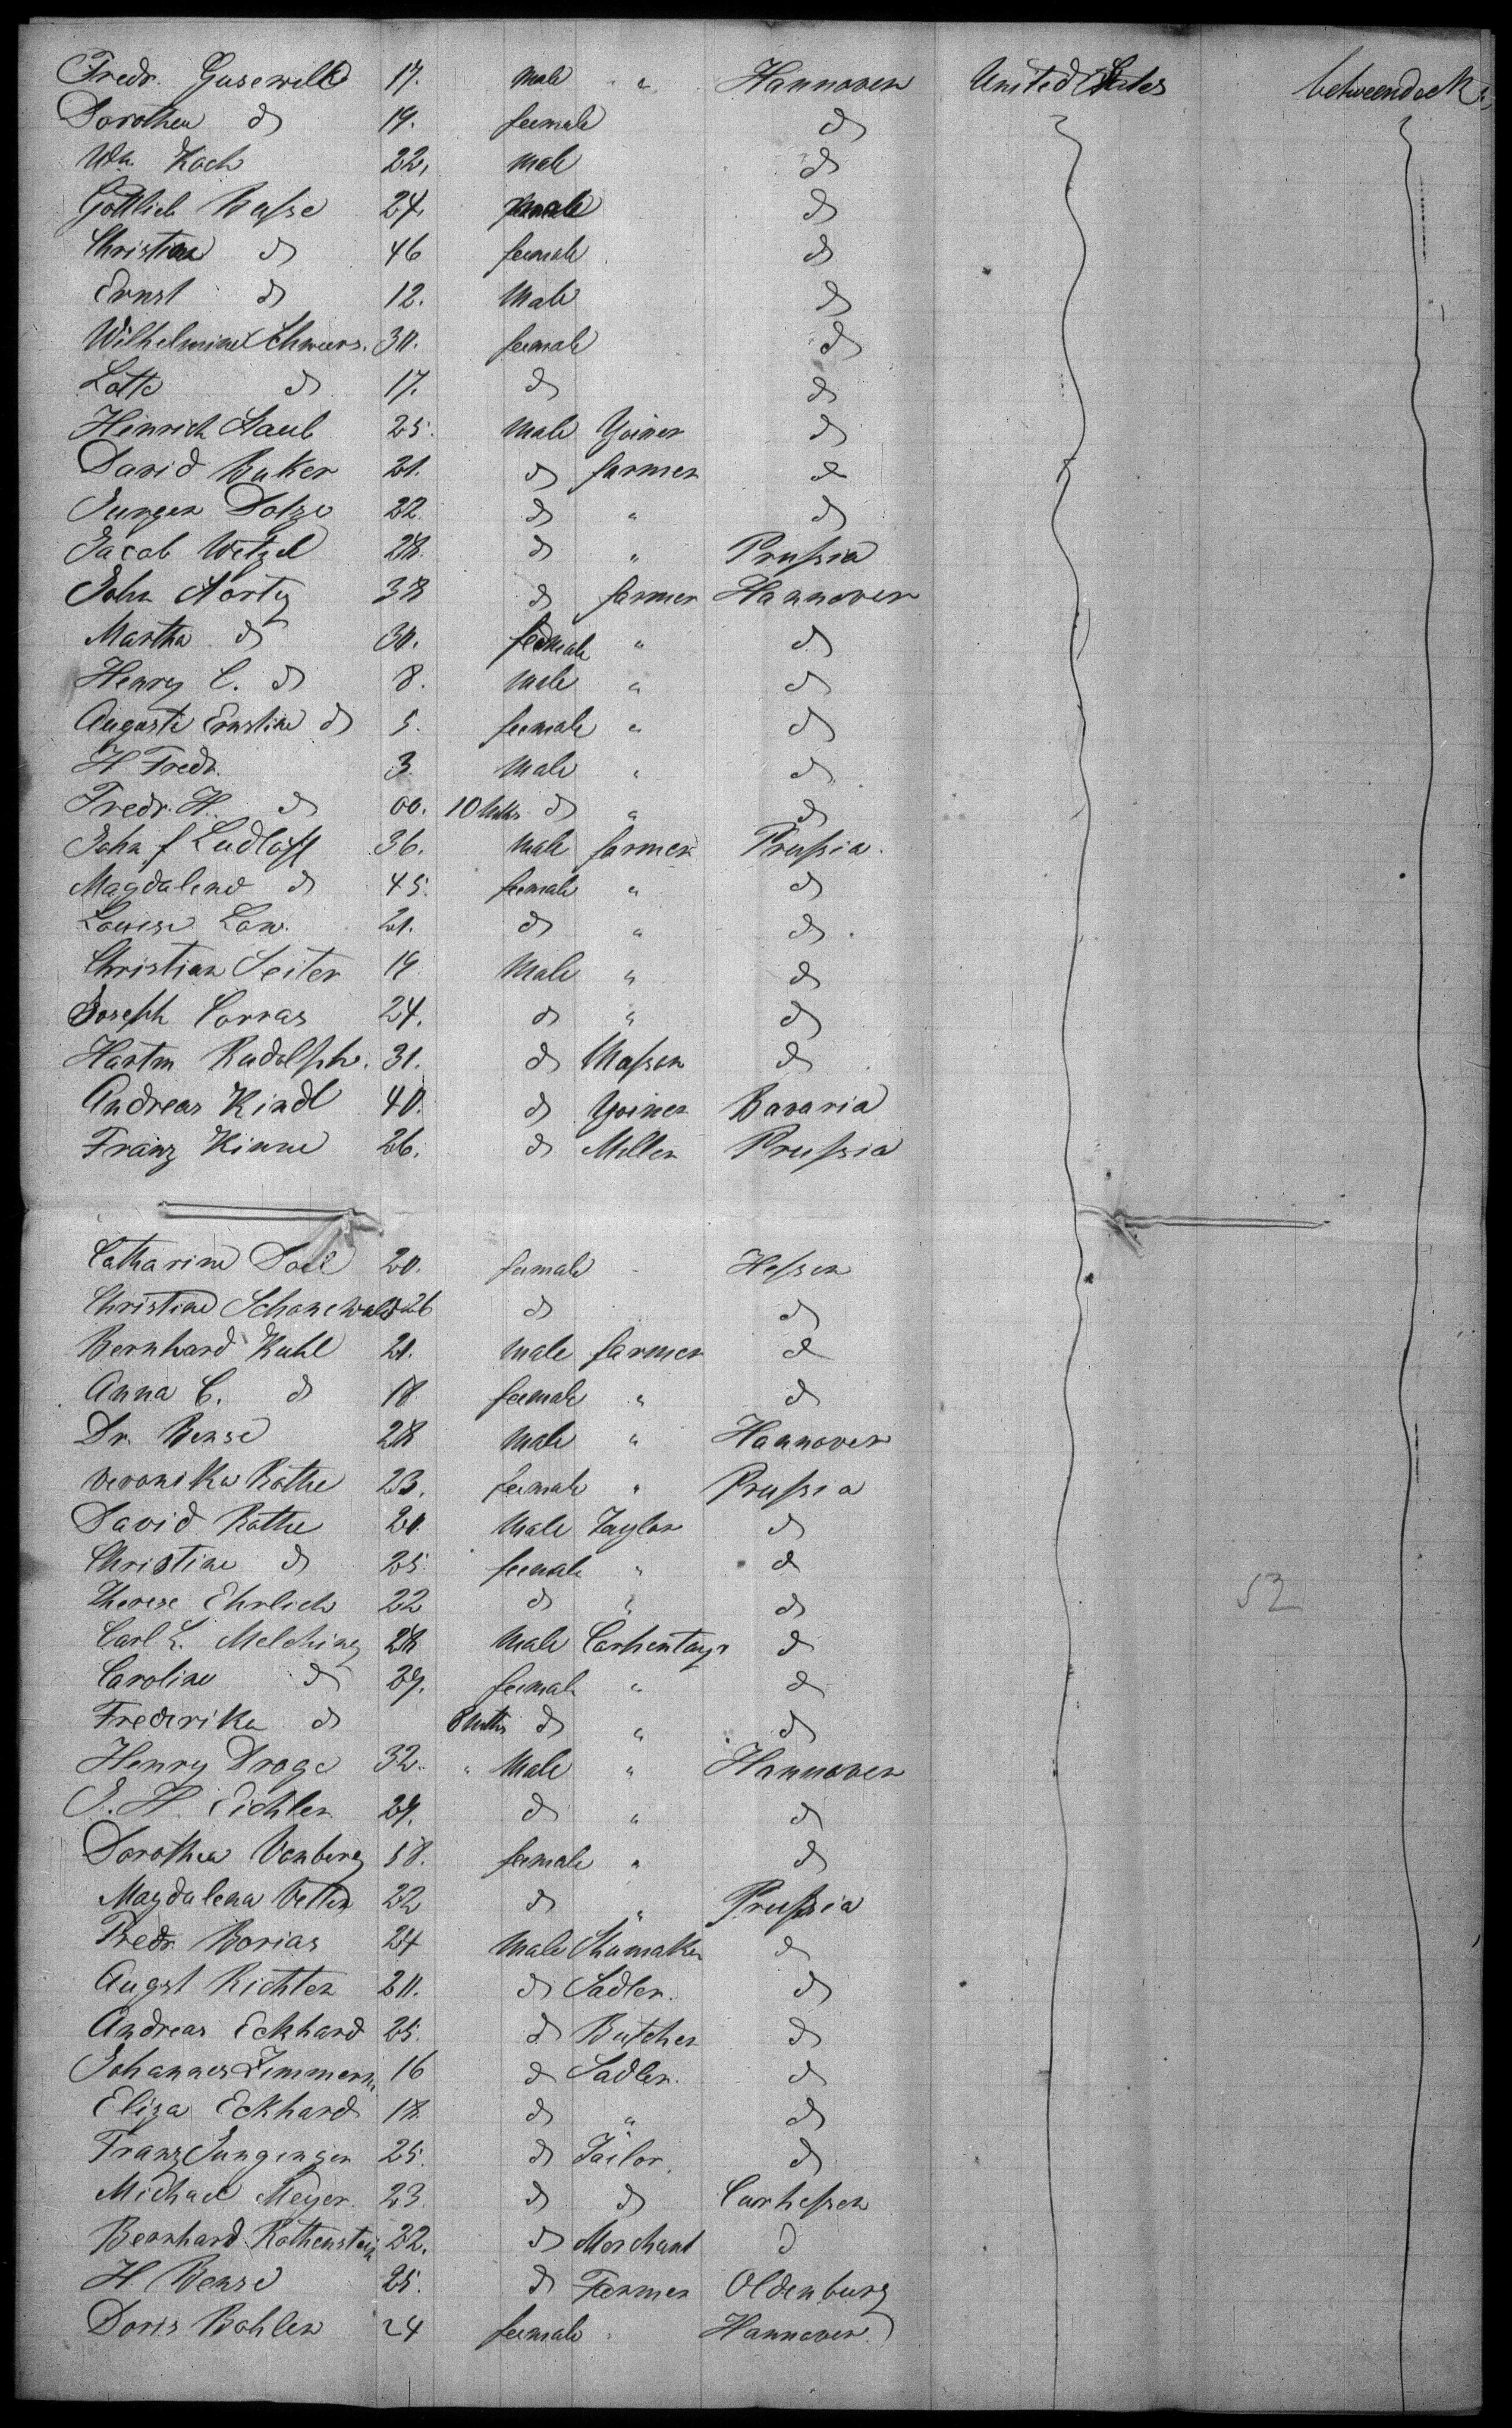 Fredr. Gusewelle 17. male " Hannover United States betweendeck
Dorothea do 19. female do
Wm. Koch 22, male do
Gottlieb Basse 24, male do
Christian do 46 female do
Ernst do 12. Male do
Wilhelmine Schweers. 30. female do
Lotte do 17. do do
Hinrich Staub 25. male Yoiner do
David Baker 21. do farmer do
Jurgen Dotze 22. do " do
Jacob Wetzel 28. do " Prussia
John Horty 38 do farmer Hannover
Martha do 30. female " do
Henry C. do 8. male " do
Auguste Ernstine do 5. female " do
H Fredr. 3. Male " do
Fredr. H. do 00. 10 Mths do " do
John f Ludloff 36. male farmer Prussia.
Magdalene do 45. female " do
Louise Law. 21. do " do.
Christian Seiter 19 Male " do
Joseph Corras 24. do " do
Hartm Rudolph. 31. do Masson do
Andreas Kindl 40. do Yoiner Bavaria
Franz Kinne 26. do Miller Prussia
Catharine 20. female Hessen
Christine Schonewald 26 do do
Bernhard Kuhl 21. male farmer do
Anna C. do 18 female " do
Dr. Bense 28 Male " Hannover
Veronika Rothe 23. female " Prussia
David Rothe 20. Male Taylor do
Christine do 25. female " do
Therese Ehrlich 22 do " do
Carl L. Melching 28 Male Carpentayr do
Caroline do 29. female " do
Frederika do 8 Mths do " do
Henry Droge 32. " Male " Hannover
J. H. Eichler 29. do " do
Dorothea Vonberg 58. female " do
Magdalena Vetter 22 do " Prussia
Fredr. Borias 24 Male Shumaker do
Augst Richter 20. do Sadler. do
Andreas Eckhard 25. do Butcher do
Johannes Zimmerm 16 do Sadler. do
Eliza Eckhard 18. do " do
Franz Jungingen 25. do Tailor. do
Michael Meyer. 23. do do Curhessen
Bernhard Rothenstein 22. do Merchant do
H. Bense 25. do Farmer Oldenburg
Doris Bohlen 24 female " Hannover
52